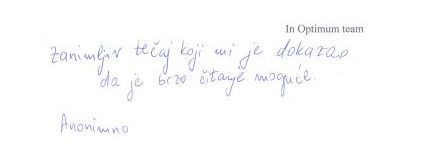 In Optimum team
Zanimljiv tečaj koji mi je dokazao
da je brzo čitanje moguće.
Anonimno